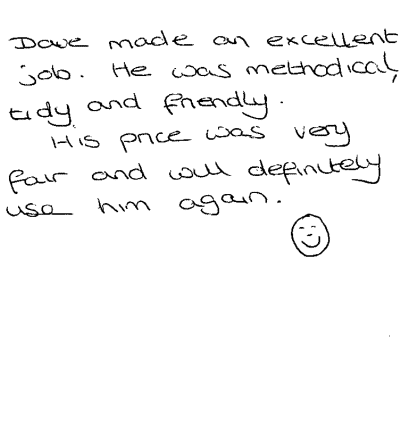 Dave made an excellent
job. He was methodical,
tidy and friendly.
His price was very
fair and will definitely
use him again.